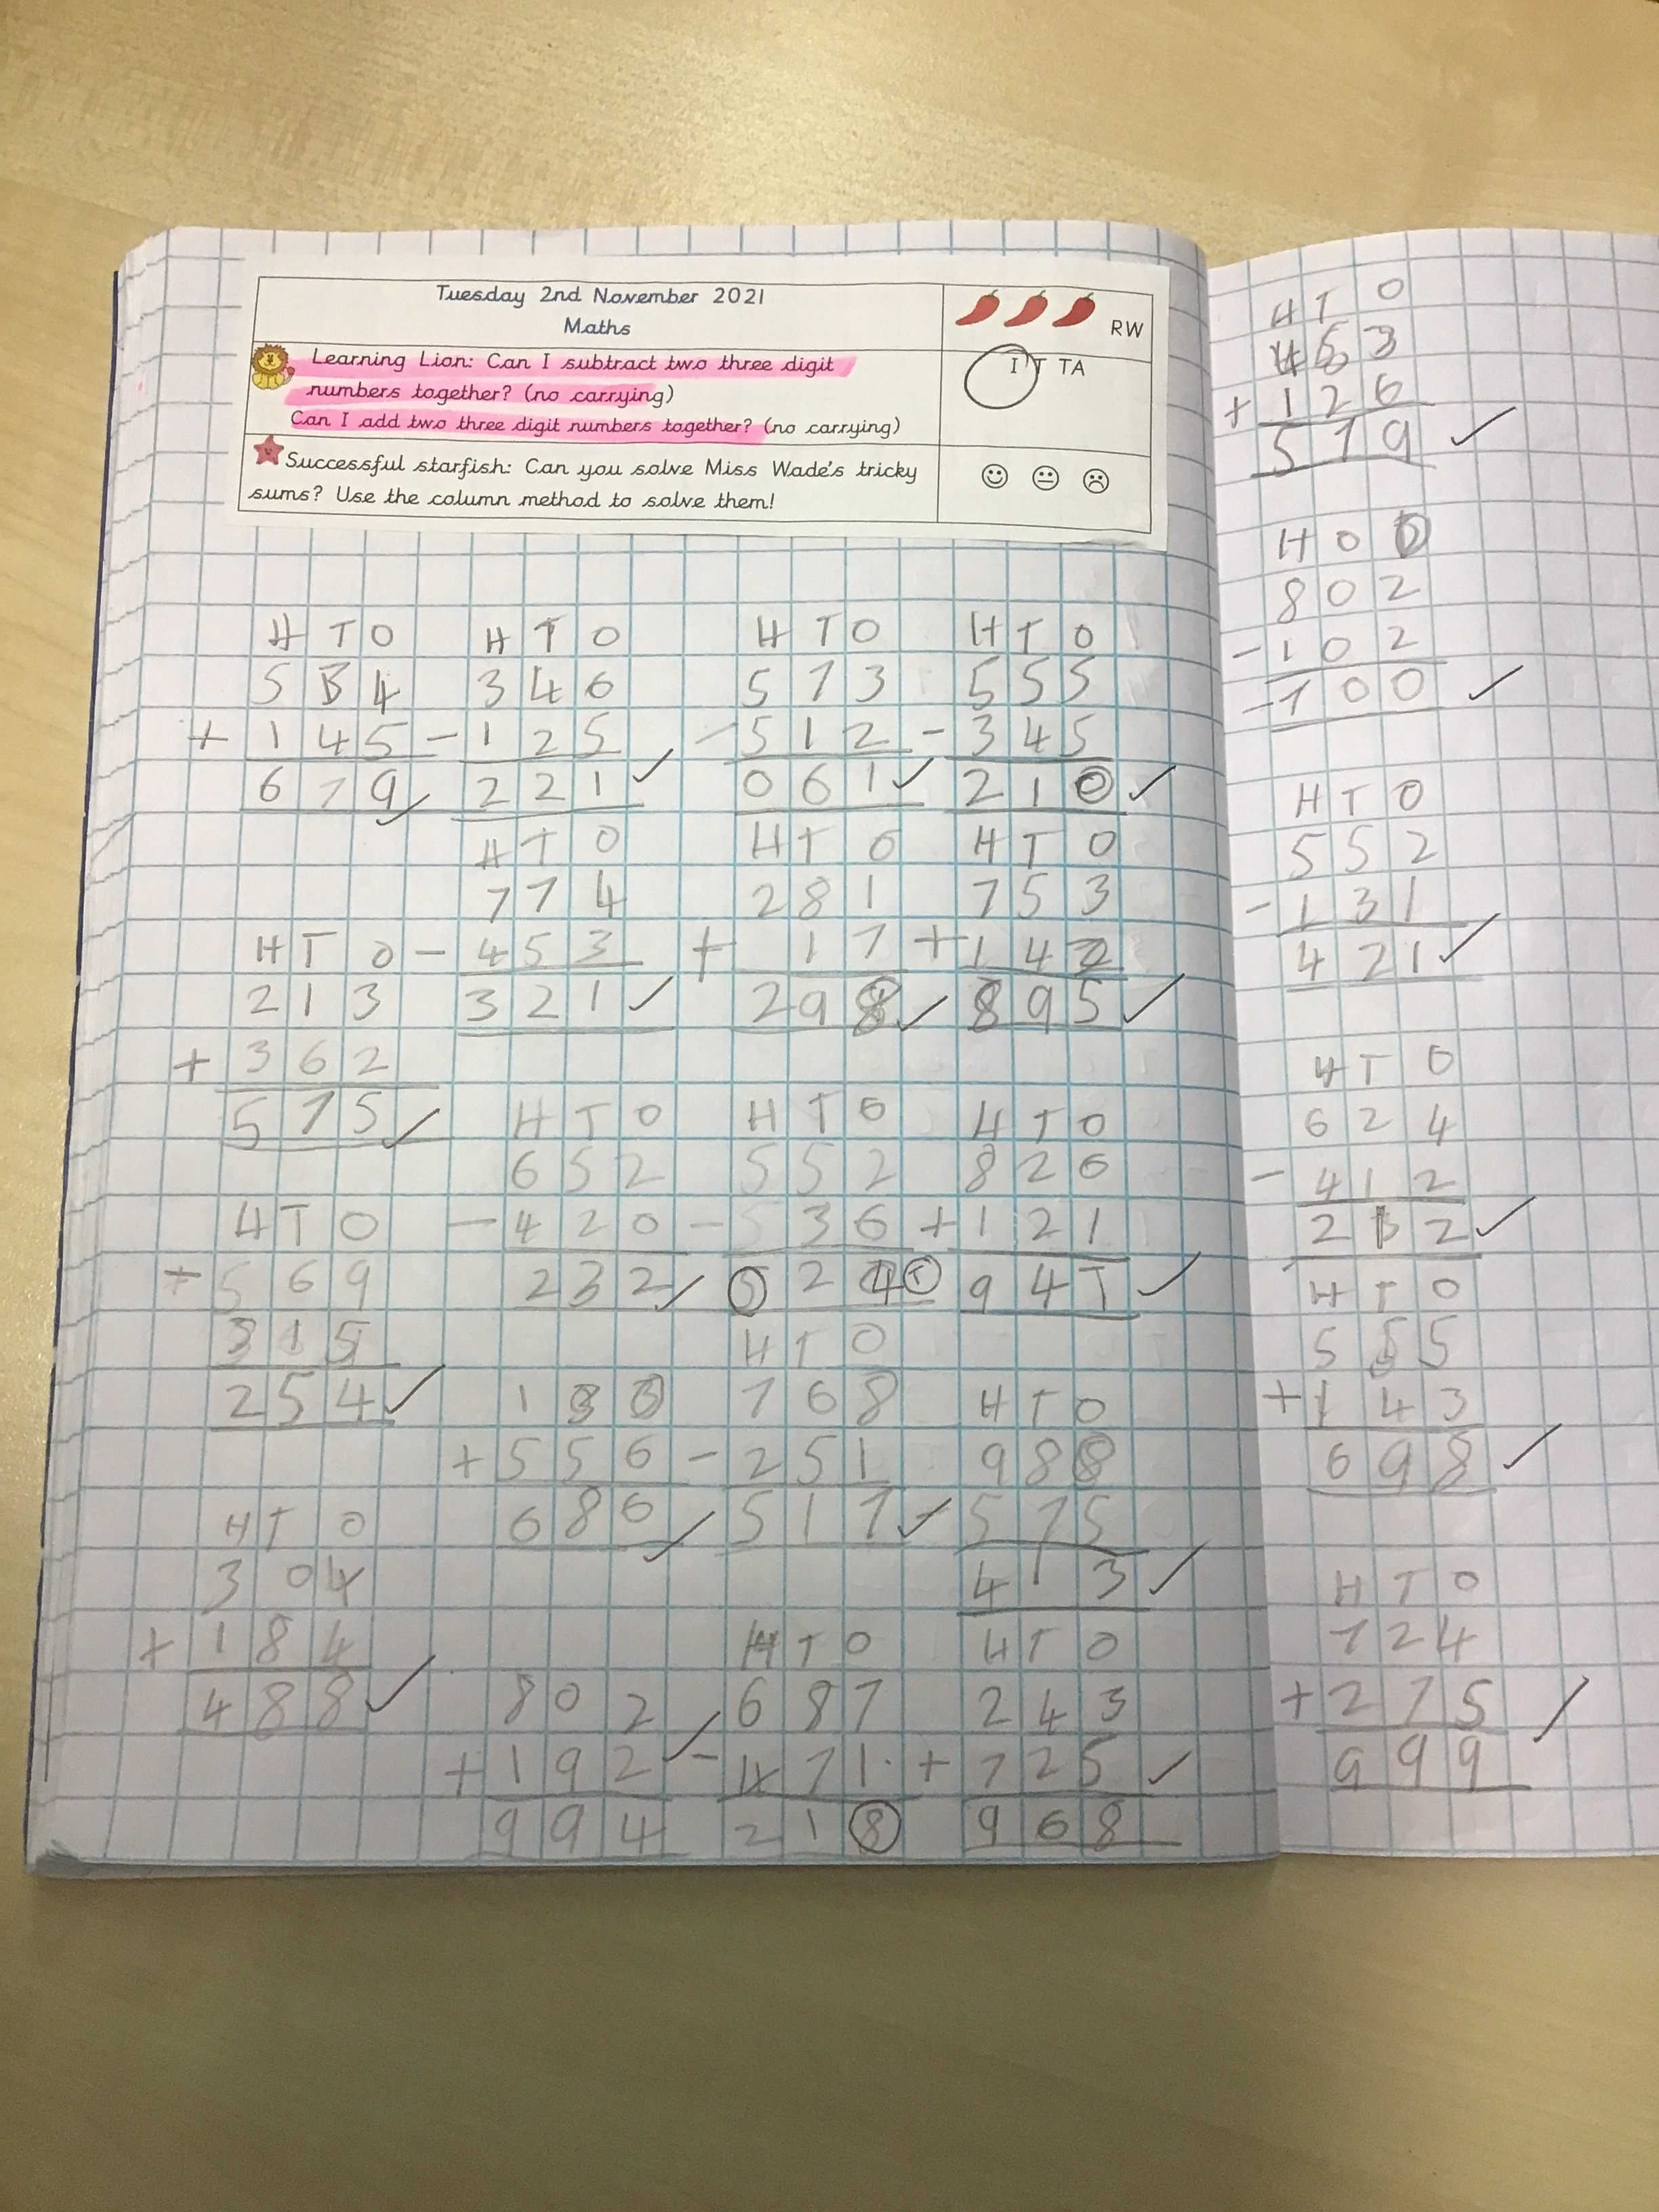 Tuesday 2nd November 2021
Maths
RW
Learning Lion: Can I subtract two three digit
numbers together? (no carrying)
Can I add two three digit numbers together? (no carrying)
I T TA
Successful starfish: Can you solve Miss Wade's tricky
sums? Use the column method to solve them!
H T O
5 3 4
+ 1 4 5
6 7 9
H T O
3 4 6
- 1 2 5
2 2 1
H T O
5 7 3
- 5 1 2
0 6 1
H T O
5 5 5
- 3 4 5
2 1 0
H T O
2 1 3
+ 3 6 2
5 7 5
H T O
7 7 4
- 4 5 3
3 2 1
H T O
2 8 1
+ 1 7
2 9 8
H T O
7 5 3
+ 1 4 2
8 9 5
H T O
5 6 9
3 1 5
2 5 4
H T O
6 5 2
- 4 2 0
2 3 2
H T O
5 5 2
- 5 3 6
2
H T O
8 2 6
+ 1 2 1
9 4 1
H T O
3 0 4
+ 1 8 4
4 8 8
1 3 0
+ 5 5 6
6 8 6
H T O
7 6 8
- 2 5 1
5 1 7
H T O
9 8 8
- 5 7 5
4 1 3
8 0 2
+ 1 9 2
9 9 4
H T O
6 8 7
- 4 7 1
2 1 8
H T O
2 4 3
+ 7 2 5
9 6 8
H T O
4 5 3
+ 1 2 6
5 7 9
H O O
8 0 2
- 1 0 2
- 7 0 0
H T O
5 5 2
- 1 3 1
4 2 1
H T O
6 2 4
- 4 1 2
2 1 2
H T O
5 5 5
+ 1 4 3
6 9 8
H T O
7 2 4
+ 2 7 5
9 9 9